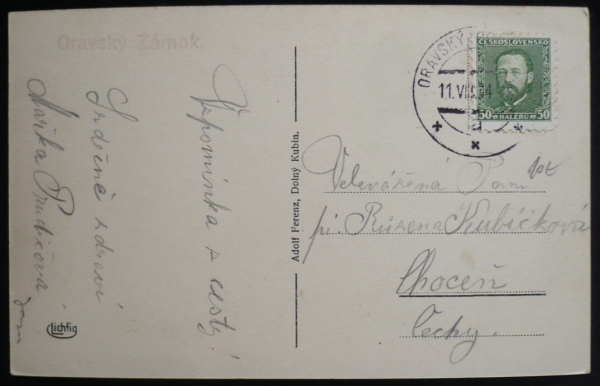 Oravský Zámok
Vzpomínka z cesty!
Srdečně zdraví
Mařka
Adolf Ferenz, Dolný Kubín.
Lichtig
ORAVSKÝ
11.VIII.34
ČESKOSLOVENSKO
50 HALÉŘŮ 50
Velevážená Paní
pí. Růžena Kubíčková
Choceň
Čechy.